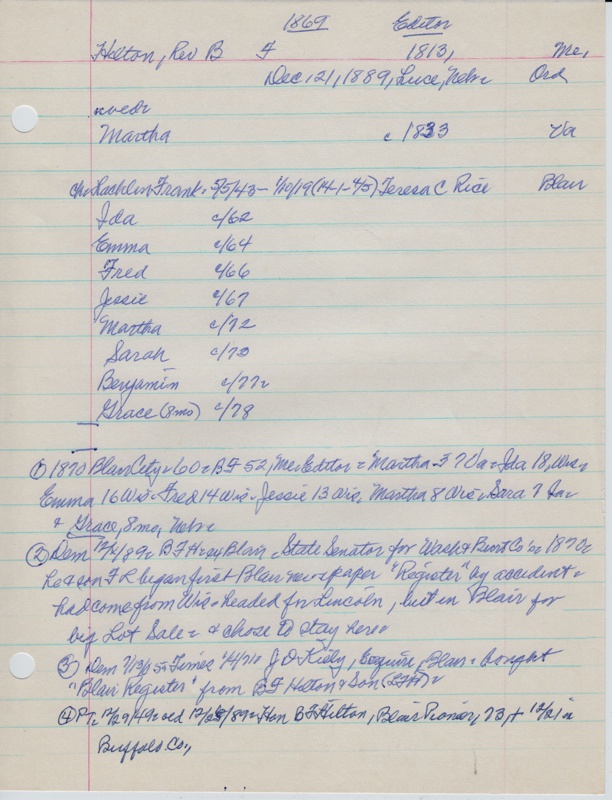 1869 Editor
Hilton, Rev B F 1813, Me,
Dec 21, 1889, Luce, Nebr Ord
Martha c 1833 Va
ch. Frank = 5/5/43 - 1/10/19 (14-1-4/5) Teresa C Rice Blair
Ida c/62
Emma c/64
Fred c/66
Jessie c/67
Martha c/72
Sarah c/73
Benjamin c/77
Grace (8mo) c/78
① 1870 Blair City = 60 = BF 52, Me Editor = Martha 37 Va = Ida 18, Wis =
Emma 16 Wis = Fred 14 Wis = Jessie 13 Wis, Martha 8 Wis = Sara 7 Ia =
& Grace, 8mo, Nebr
② Dem BFH Blair, State Senator for Wash & Burt Co's 1870 =
he & son FR began first Blair newspaper "Register" by accident =
had come from Wis = headed for Lincoln, but in Blair for
big Lot Sale = & chose to stay here =
③ Dem 7/13/5 = Times J O Kiely, Esquire, Blair = bought
"Blair Register" from BF Hilton & Son
④ PT = 12/29/49 = Hon BF Hilton, Blair Pioneer, 73, + 12/21 in
Buffalo Co.,